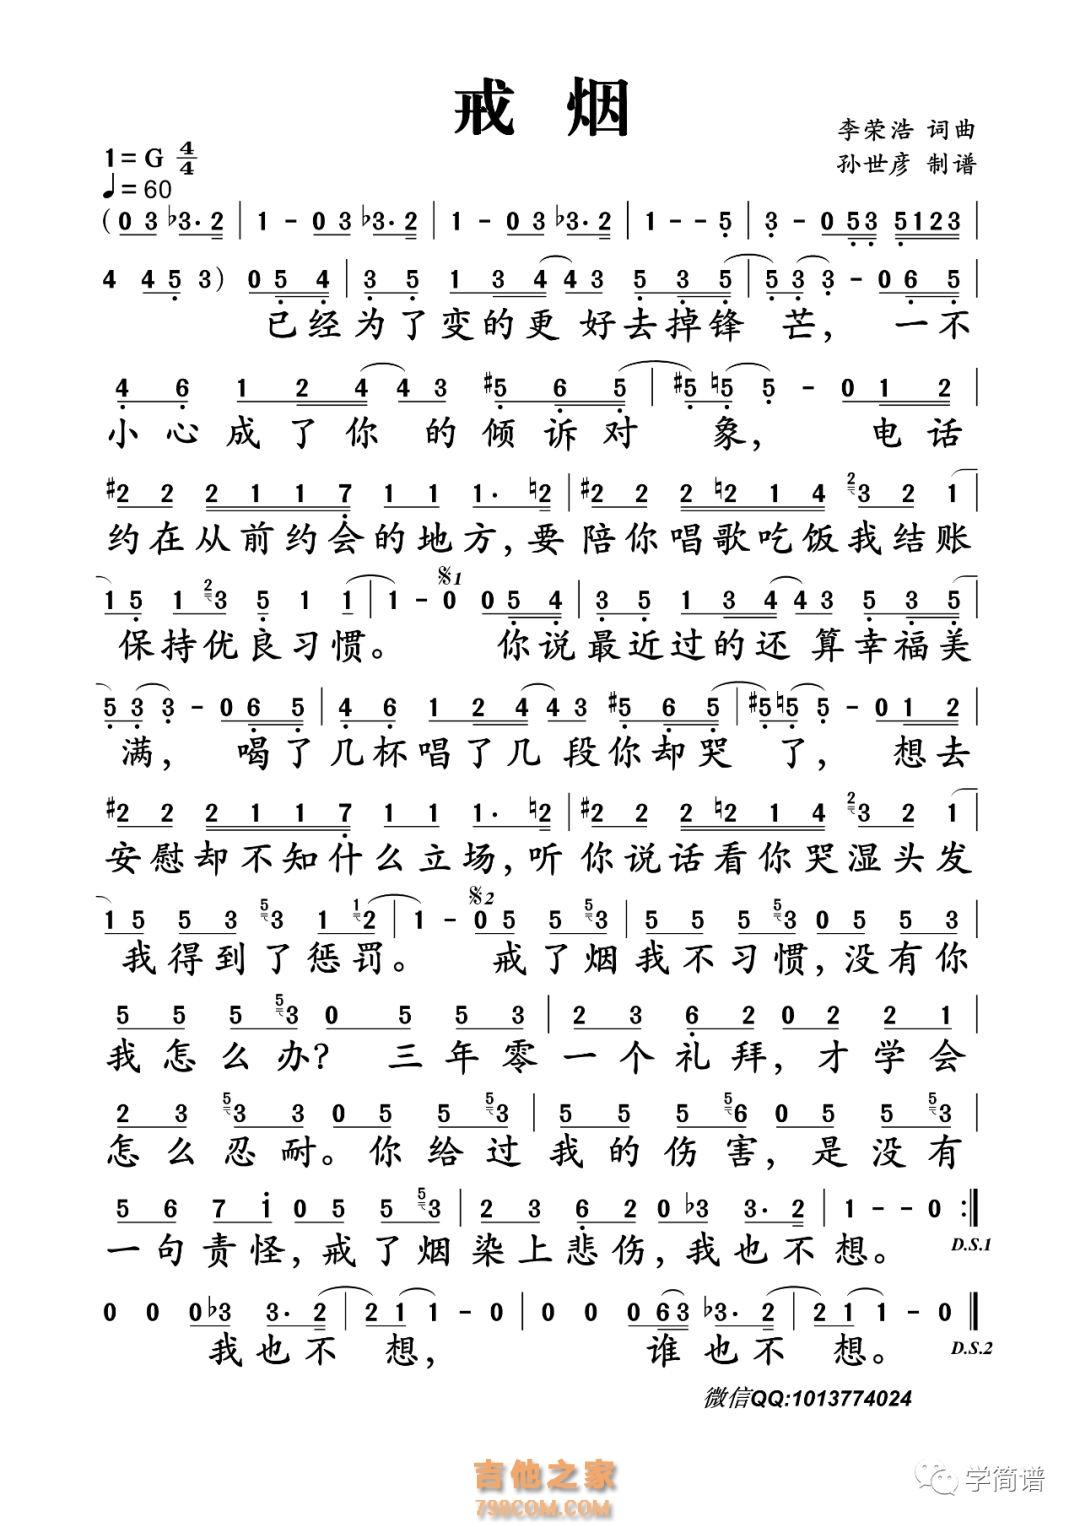 戒 烟
李荣浩 词曲
1=G 4/4
孙世彦 制谱
♩=60
(0 3 ♭3· 2 | 1 - 0 3 ♭3· 2 | 1 - 0 3 ♭3· 2 | 1 - - 5 | 3 - 0 5 3 5 1 2 3 |
4 4 5 3) 0 5 4 | 3 5 1 3 4 4 3 5 3 5 | 5 3 3 - 0 6 5 |
已经为了变的更 好去掉锋 芒， 一不
4 6 1 2 4 4 3 #5 6 5 | #5 ♮5 5 - 0 1 2 |
小心成了你 的倾诉对 象， 电话
#2 2 2 1 1 7 1 1 1· ♮2 | #2 2 2 ♮2 1 4 2 3 2 1 |
约在从前约会的地方，要陪你唱歌吃饭我结账
𝄋1
1 5 1 2 3 5 1 1 | 1 - 0 0 5 4 | 3 5 1 3 4 4 3 5 3 5 |
保持优良习惯。 你说最近过的还 算幸福美
5 3 3 - 0 6 5 | 4 6 1 2 4 4 3 #5 6 5 | #5 ♮5 5 - 0 1 2 |
满， 喝了几杯唱了几 段你却哭 了，想去
#2 2 2 1 1 7 1 1 1· ♮2 | #2 2 2 ♮2 1 4 2 3 2 1 |
安慰却不知什么立场，听你说话看你哭湿头发
𝄋2
1 5 5 3 5 3 1 1 2 | 1 - 0 5 5 5 3 | 5 5 5 5 3 0 5 5 3 |
我得到了惩罚。 戒了烟我不习惯，没有你
5 5 5 5 3 0 5 5 3 | 2 3 6 2 0 2 2 1 |
我怎么办？ 三年零一个礼拜，才学会
2 3 5 3 3 0 5 5 5 3 | 5 5 5 6 0 5 5 5 3 |
怎么忍耐。你给过我的伤害，是没有
5 6 7 1 0 5 5 5 3 | 2 3 6 2 0 ♭3 3· 2 | 1 - - 0 :‖
一句责怪，戒了烟染上悲伤，我也不想。
D.S.1
0 0 0 ♭3 3· 2 | 2 1 1 - 0 | 0 0 0 6 3 ♭3· 2 | 2 1 1 - 0 ‖
我也不 想， 谁也不 想。
D.S.2
微信QQ:1013774024
吉他之家
798COM.COM
学简谱